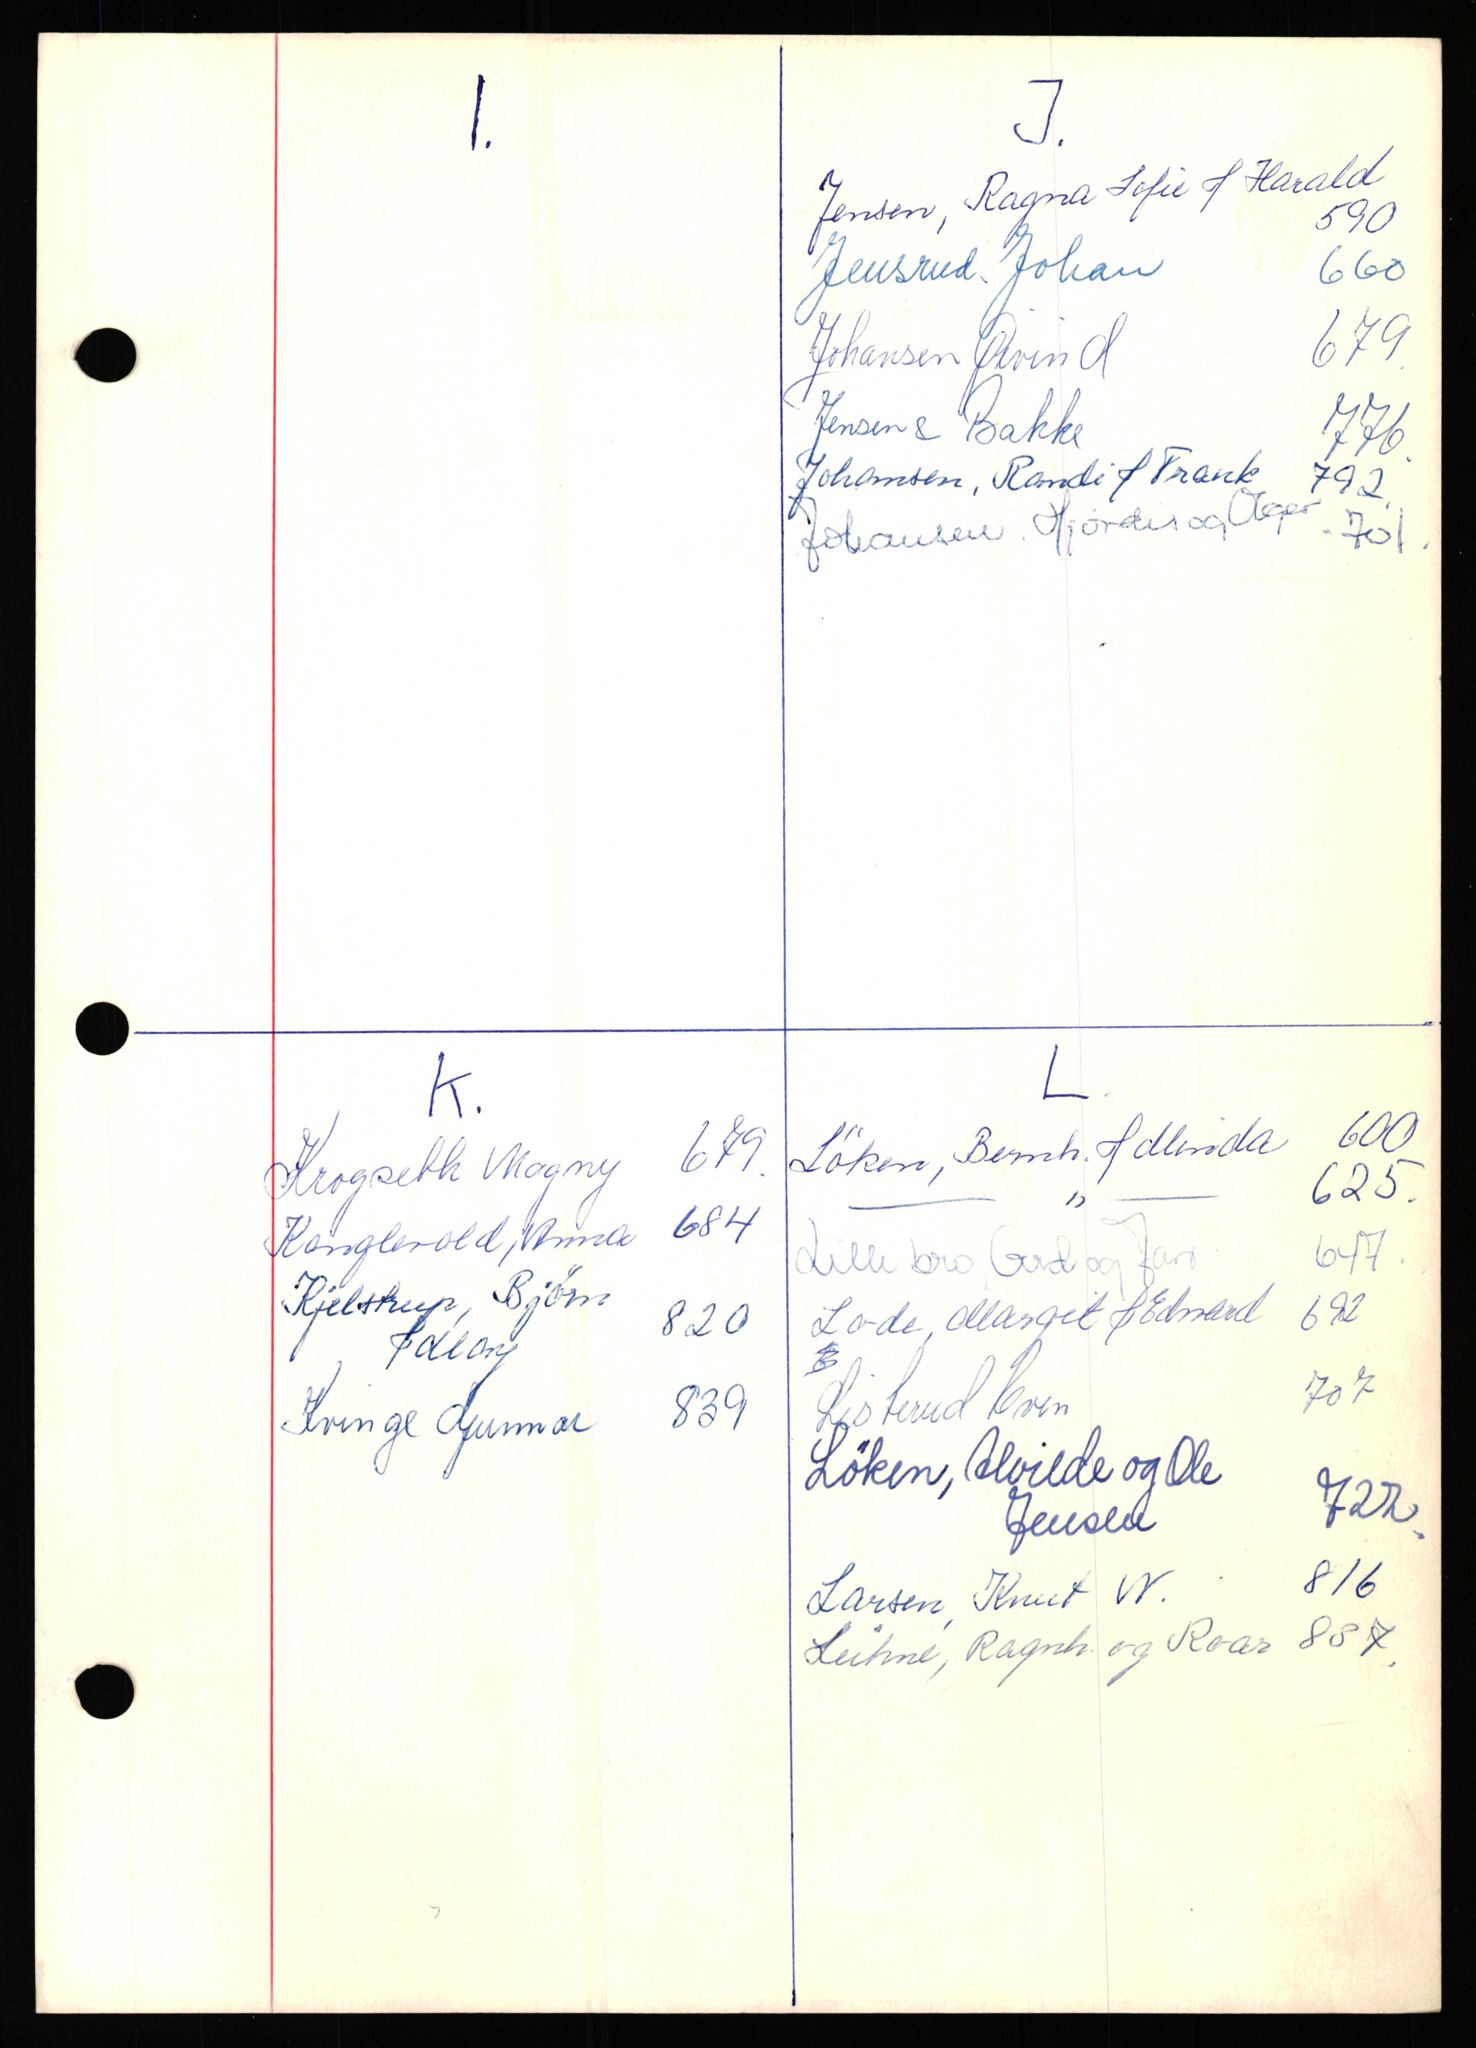 I.
J.
Jensen, Ragna Sofie & Harald
590
Jensrud. Johan 660
Johansen Øivind 679.
Jensen & Bakke 776.
Johansen, Randi & Frank 792.
Johansen. Hjördis og Aager 701.
K.
Krogseth Magny 679.
Konglevold, Anna 684
Kjelstrup, Björn
& May 820
Kvinge Gunnar 839
L.
Löken, Bernh. & Minda 600
— " — 625.
Lillebro, Gerd og Jan 647.
Lode, Margit & Edvard 692
Listerud Even 707
Löken, Alvilde og Ole
Jensen 722.
Larsen, Knut W. 816
Lühne, Ragnh. og Roar 887.